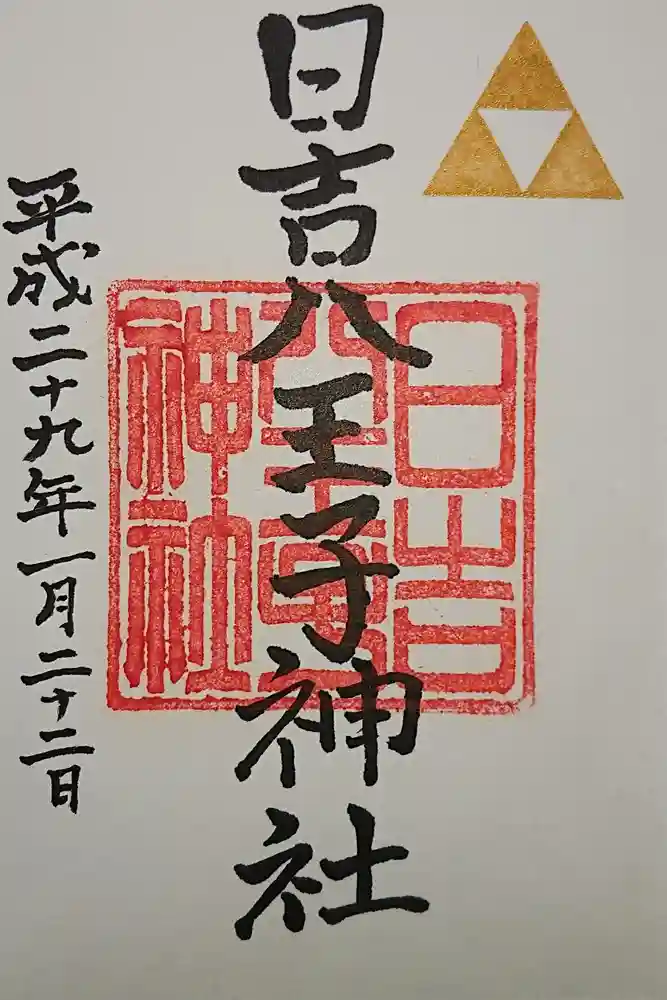 日吉八王子神社
平成二十九年一月二十二日
日吉
神社